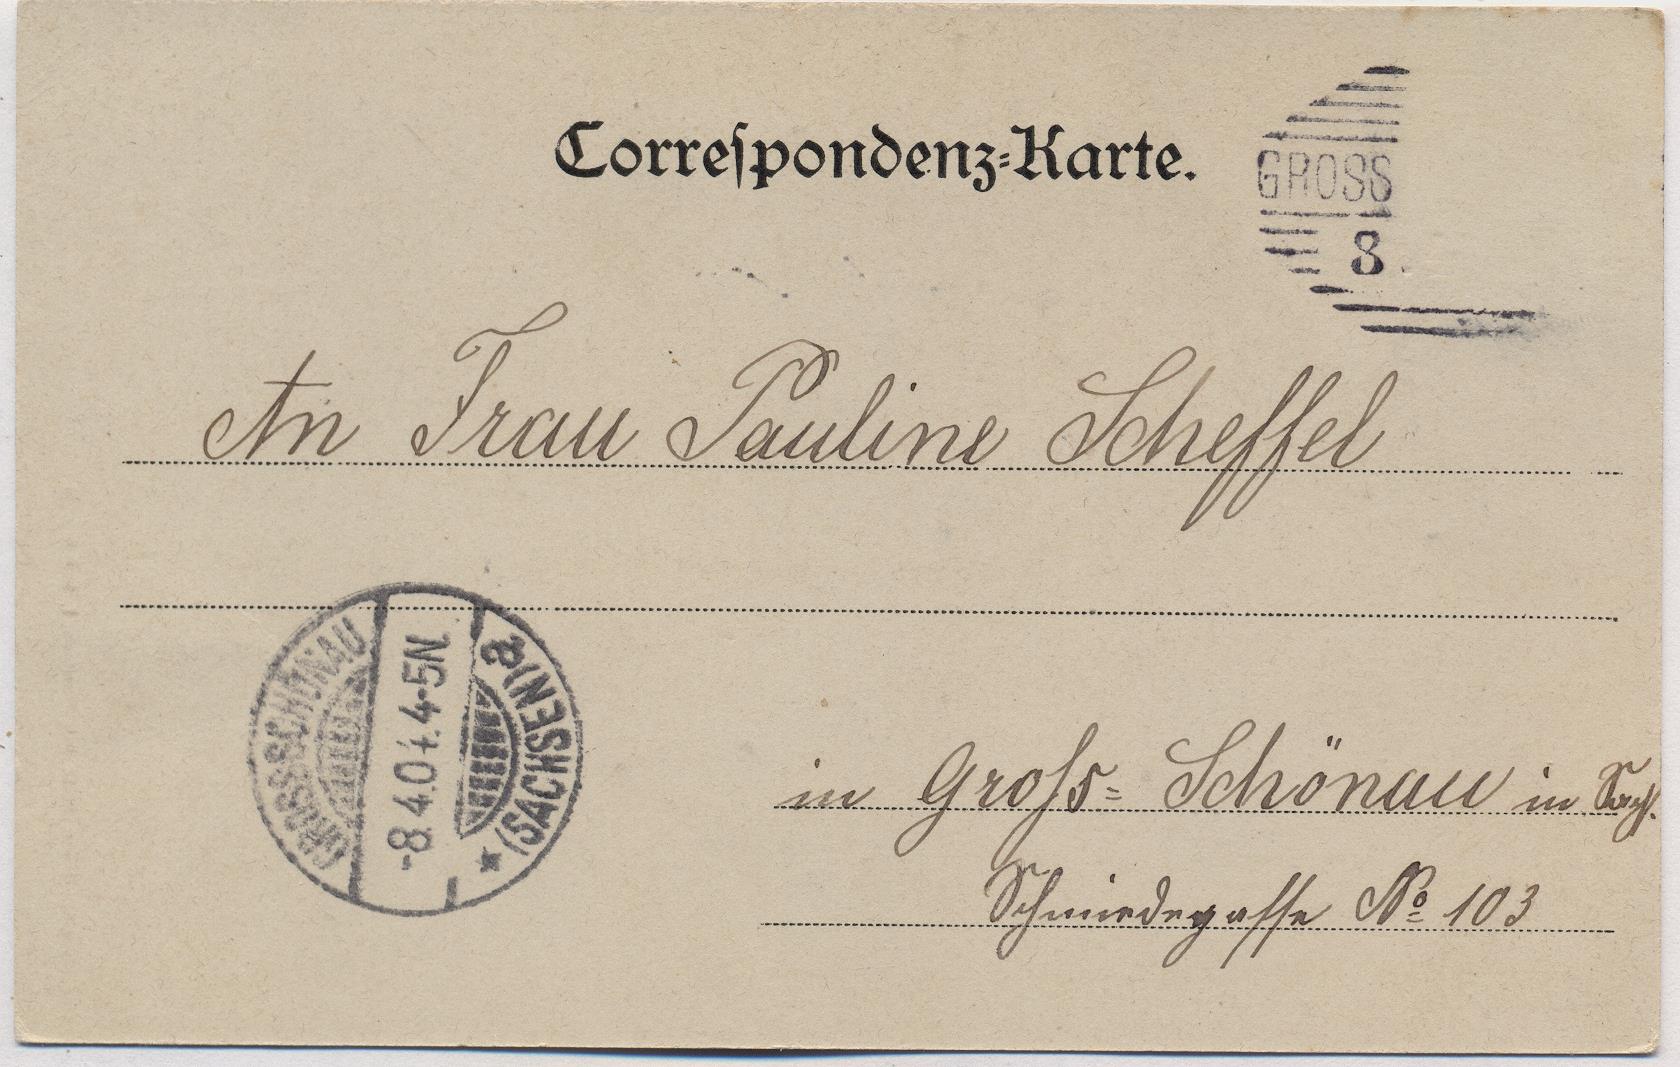 Correſpondenz=Karte.
GROSS
8
An Frau Pauline Scheffel
GROSSSCHÖNAU
(SACHSEN) a
-8.4.04.4-5N.
in Groſs= Schönau in Sachſ.
Schmiedegasse No 103